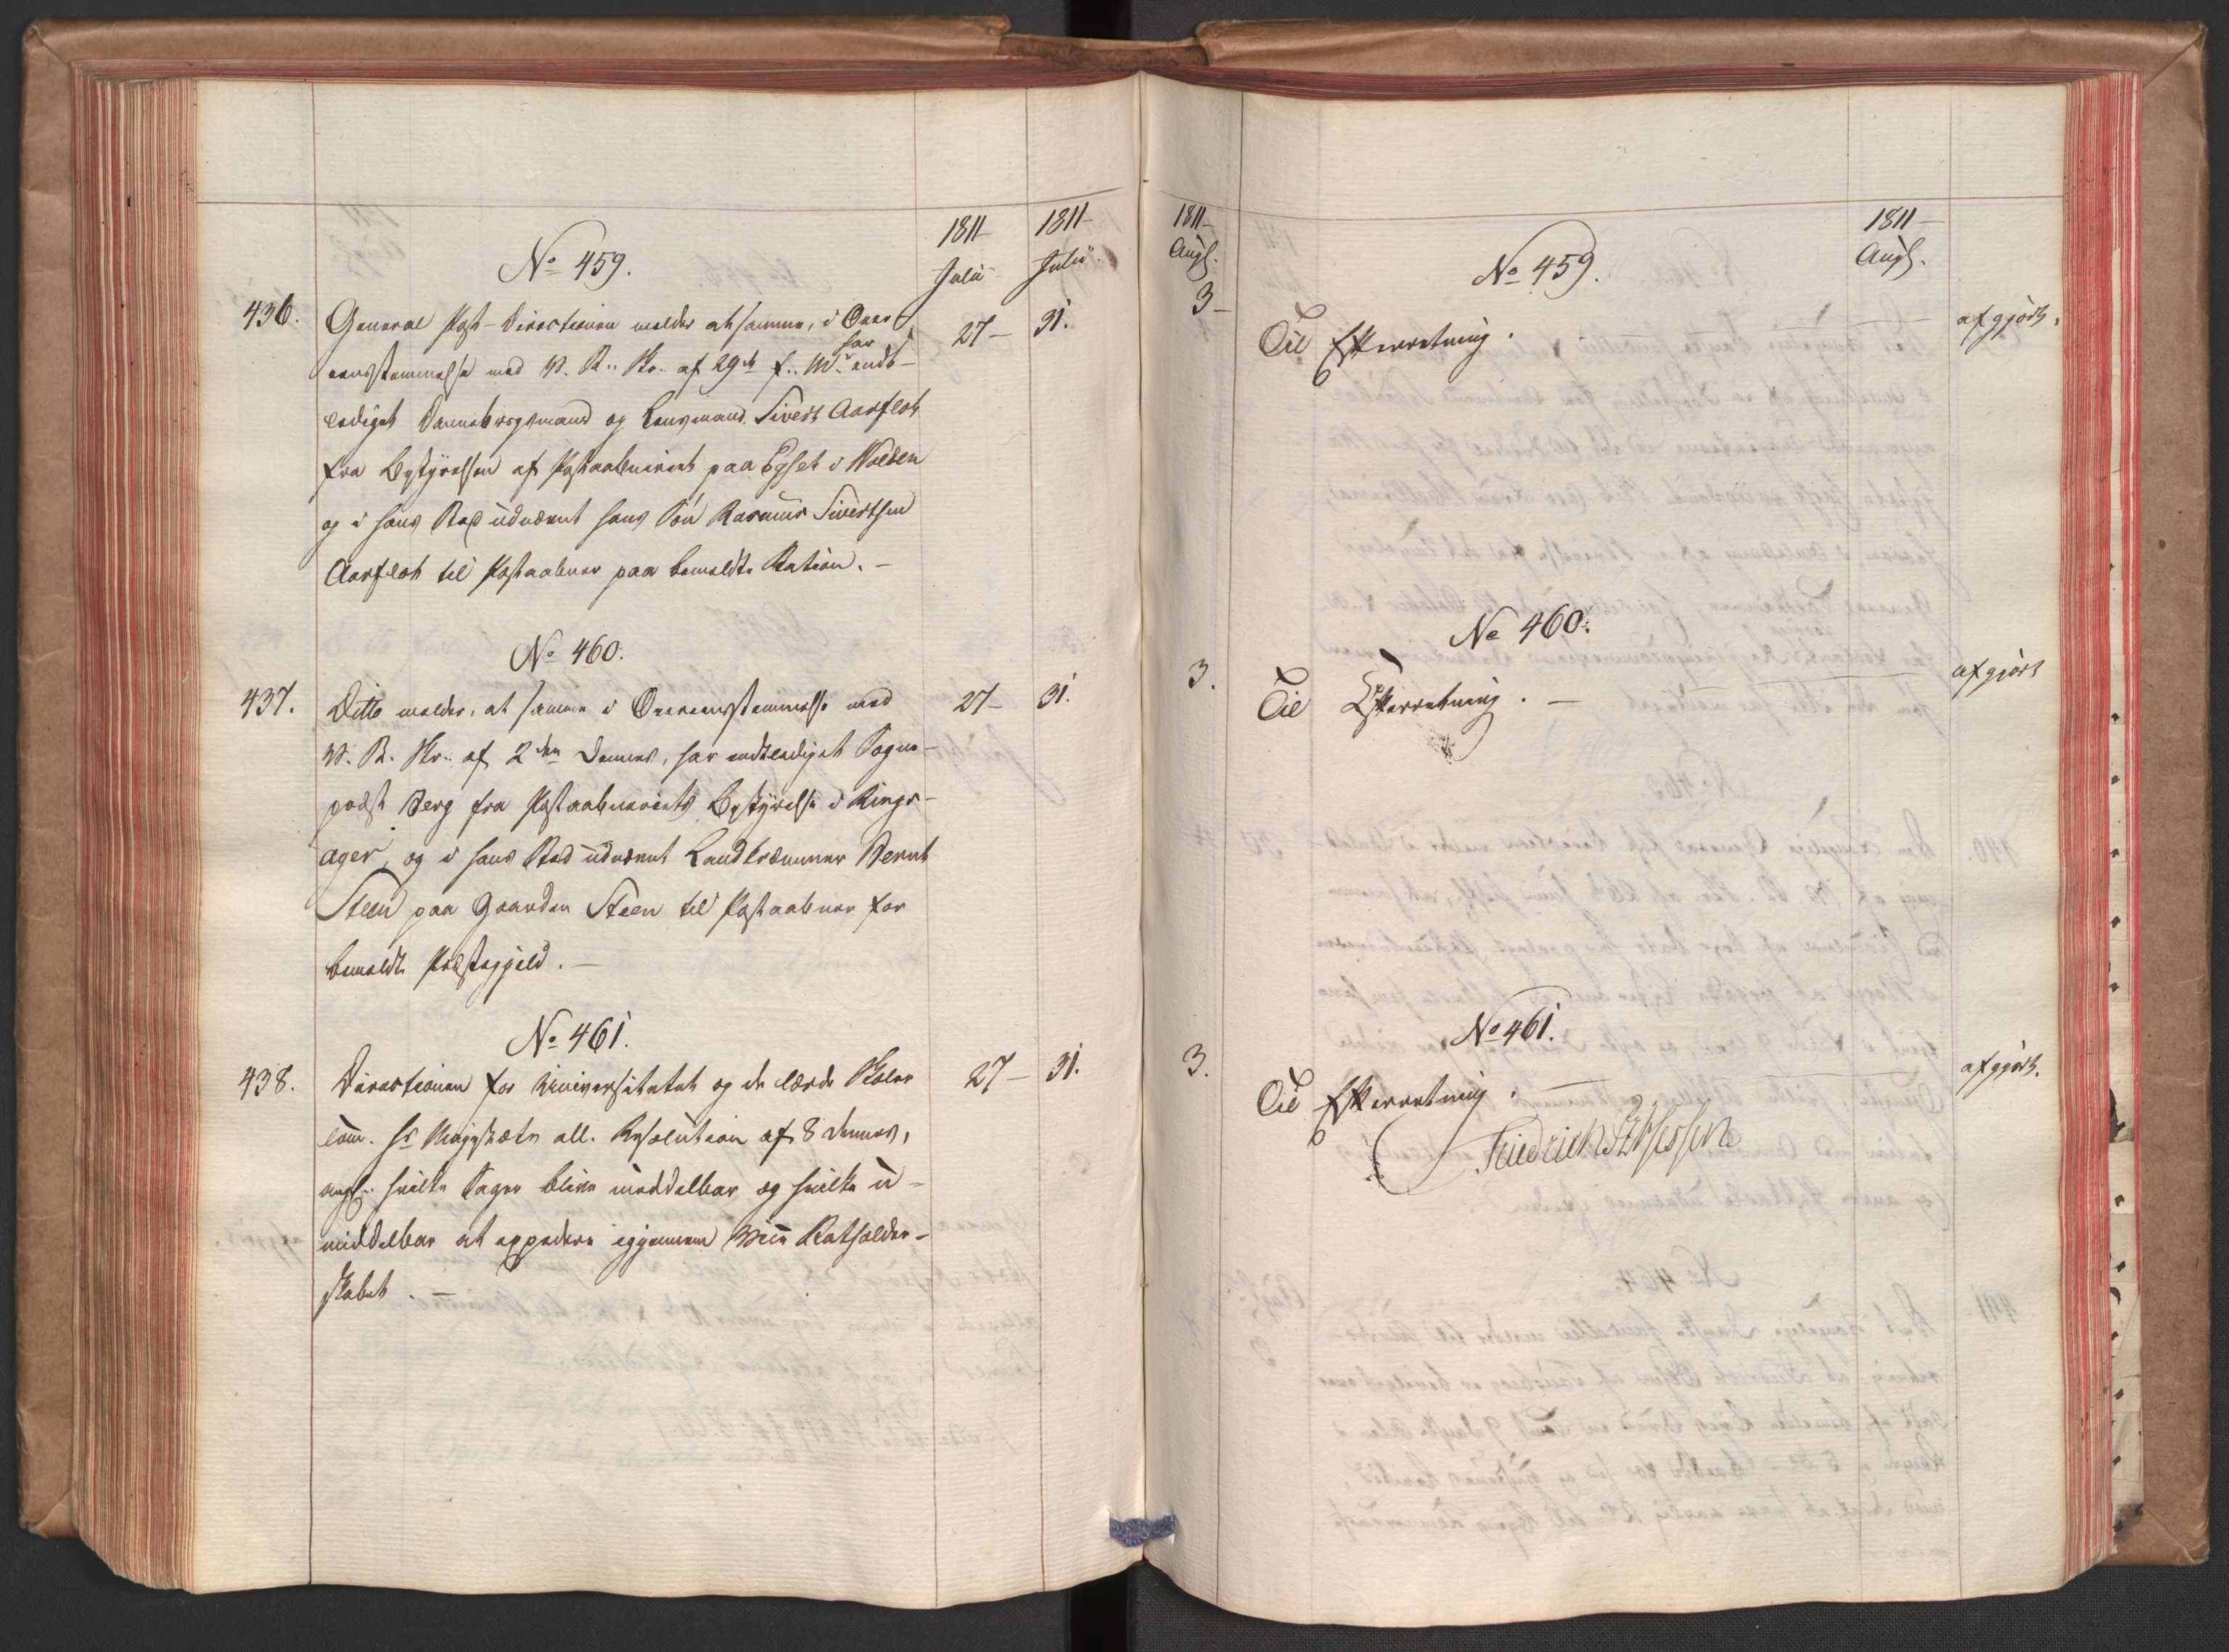 1811 1811
Julii Julii
No 459.
436. General Post-Directionen melder at samme, i Over- 27- 31.
eensstemmelse med V. R. Skr. af 29de f. Md. har endt-
lediget Dannebrogsmand og Lensmand Sivert Aarflot
fra Bestyrelsen af Postaabneriet paa Egset i Wolden
og i hans Sted udnævnt hans Søn Rasmus Sivertsen
Aarflot til Postaabner paa bemeldte Station. -
No 460.
437. Ditto melder, at samme i Overeensstemmelse med 27- 31.
V. R. Skr. af 2den dennes, har endtlediget Sogne-
præst Berg fra Postaabneriets Bestyrelse i Rings-
ager, og i hans Sted udnævnt Landkræmmer Bernt
Steen paa Gaarden Steen til Postaabner for
bemeldte Præstegjeld. -
No 461.
438. Directionen for Universitetet og de lærde Skoler 27- 31.
com. Hs Majestæts all. Resolution af 8 dennes,
angl. hvilke Sager blive middelbar og hvilke u-
middelbar at expedere igjennem Viin Statholder-
skabet. -
1811 1811-
Augs. Augs.
No 459.
3- Til Efterretning. - afgjort.
No 460.
3. Til Efterretning. - afgjort
No 461.
3. Til Efterretning. - afgjort.
Friedrich